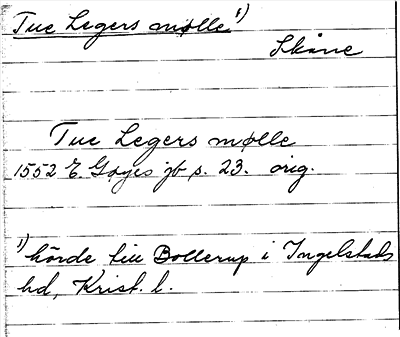 Tue Legers mølle 1)
Skåne
Tue Legers mølle
1552 E. Gøyes jb s. 23. orig.
1) hörde till Bollerup i Ingelstads
hd, Krist. l.